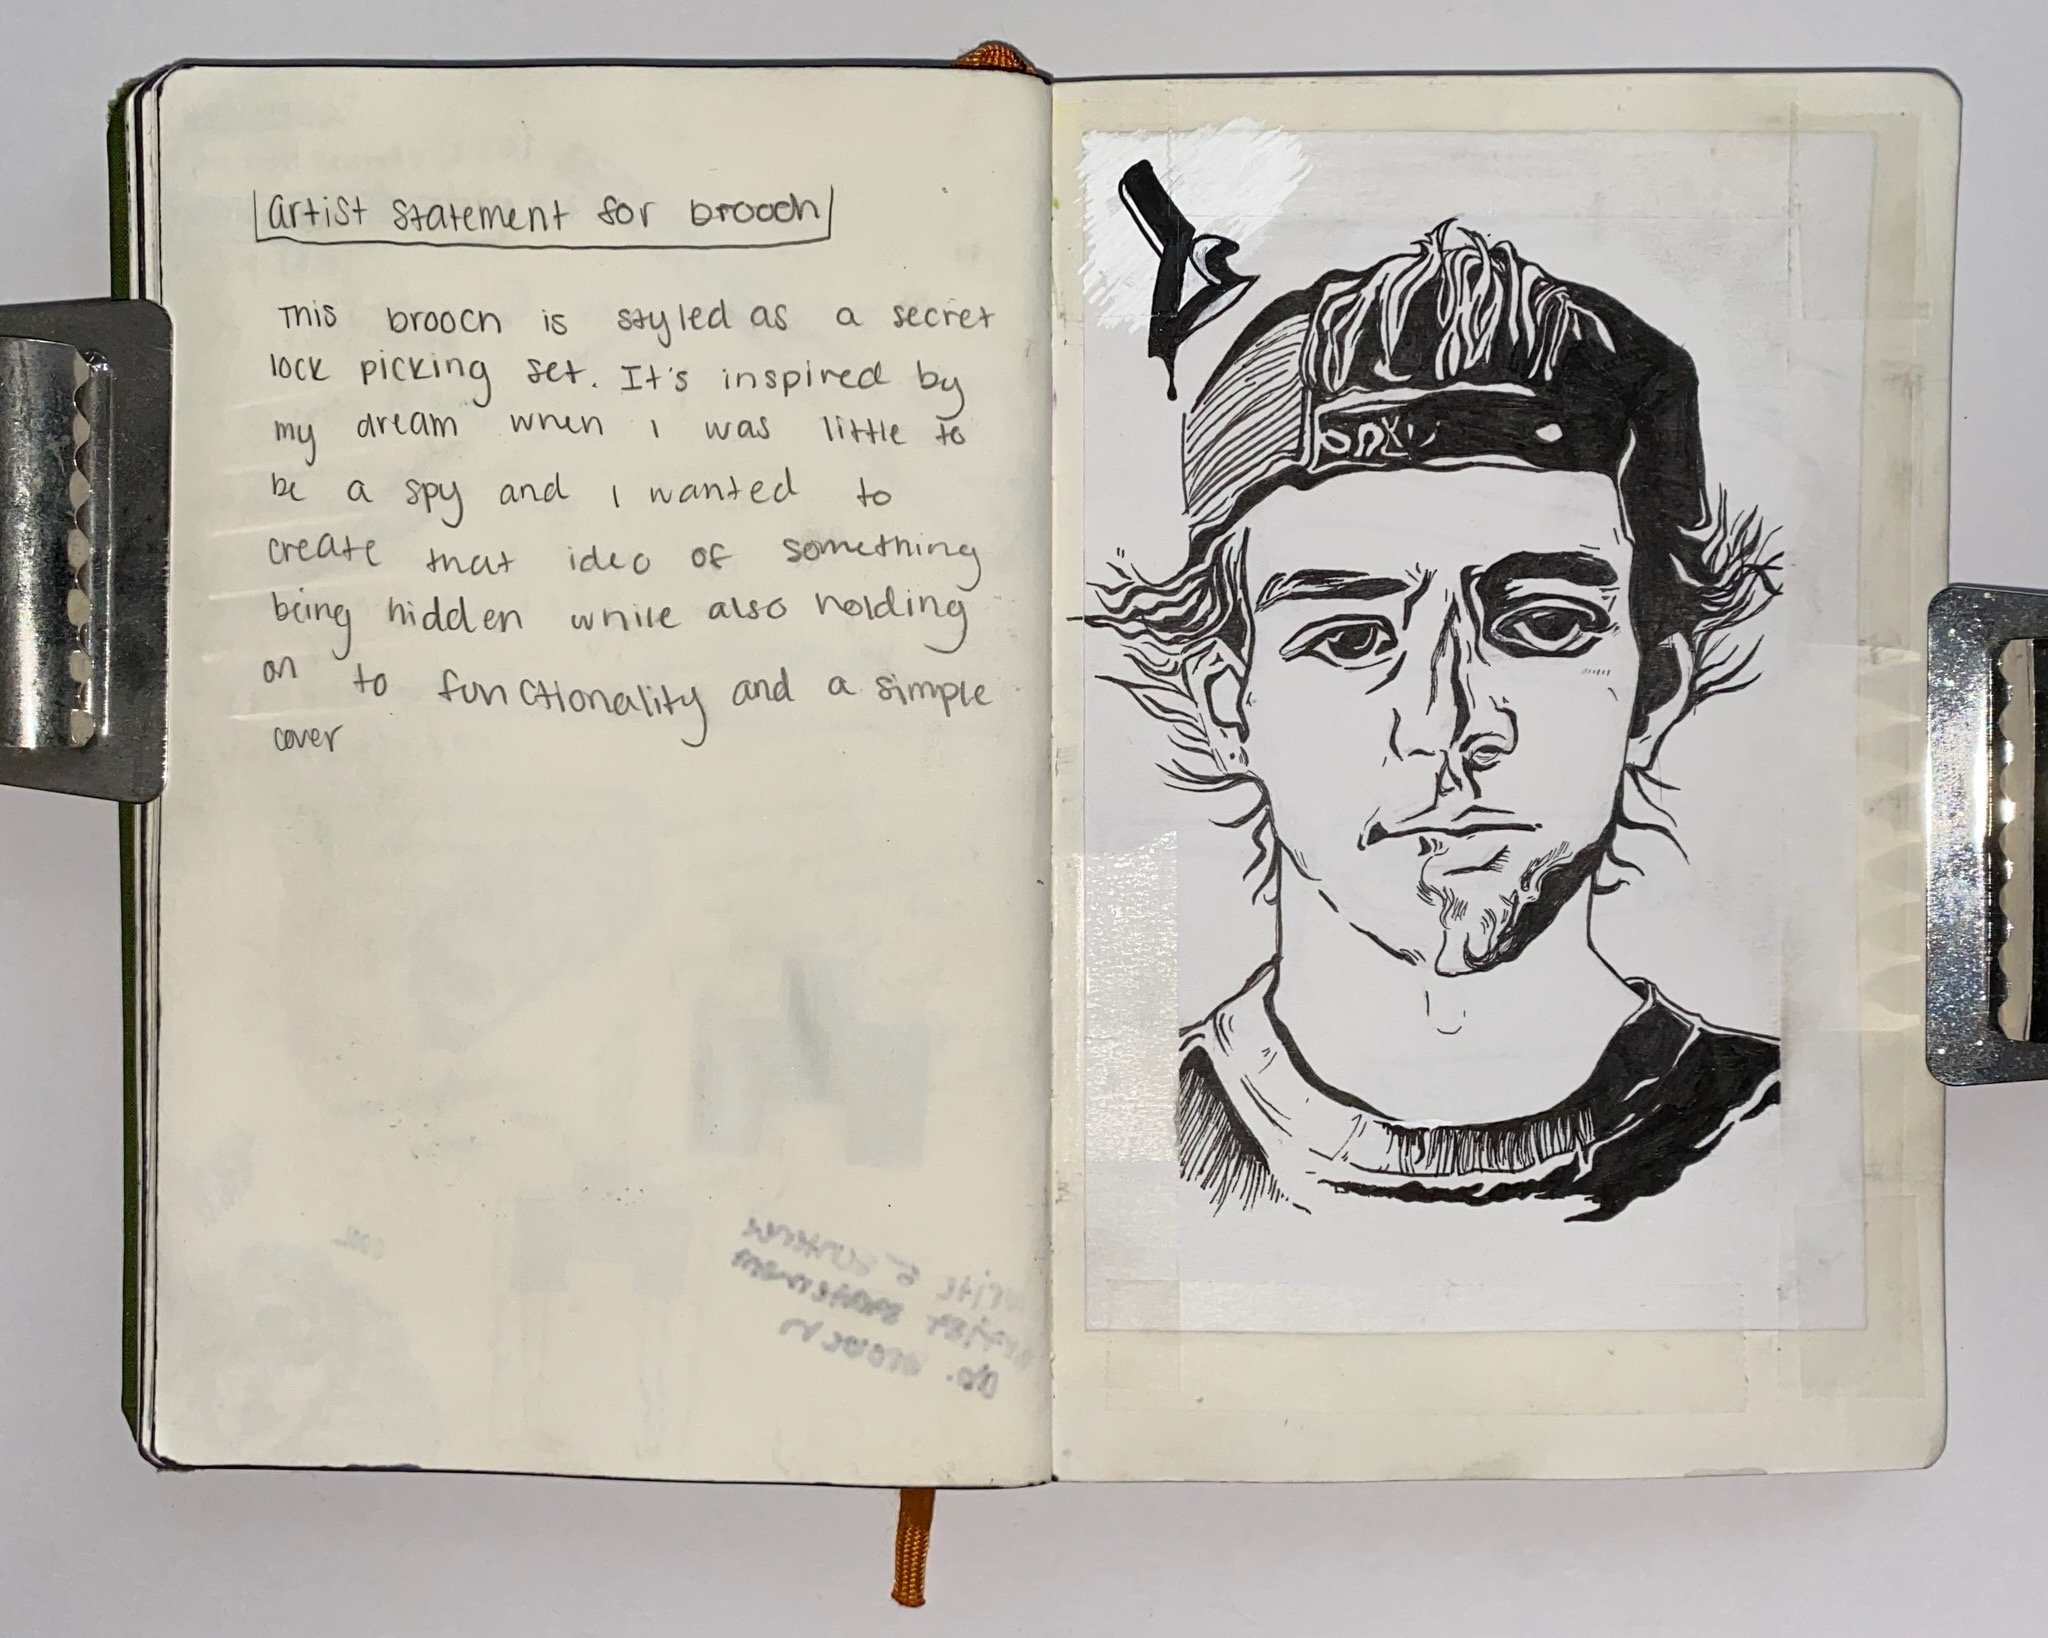 artist statement for brooch
This brooch is styled as a secret
lock picking set. It's inspired by
my dream when I was little to
be a spy and I wanted to
create that idea of something
being hidden while also holding
on to functionality and a simple
cover